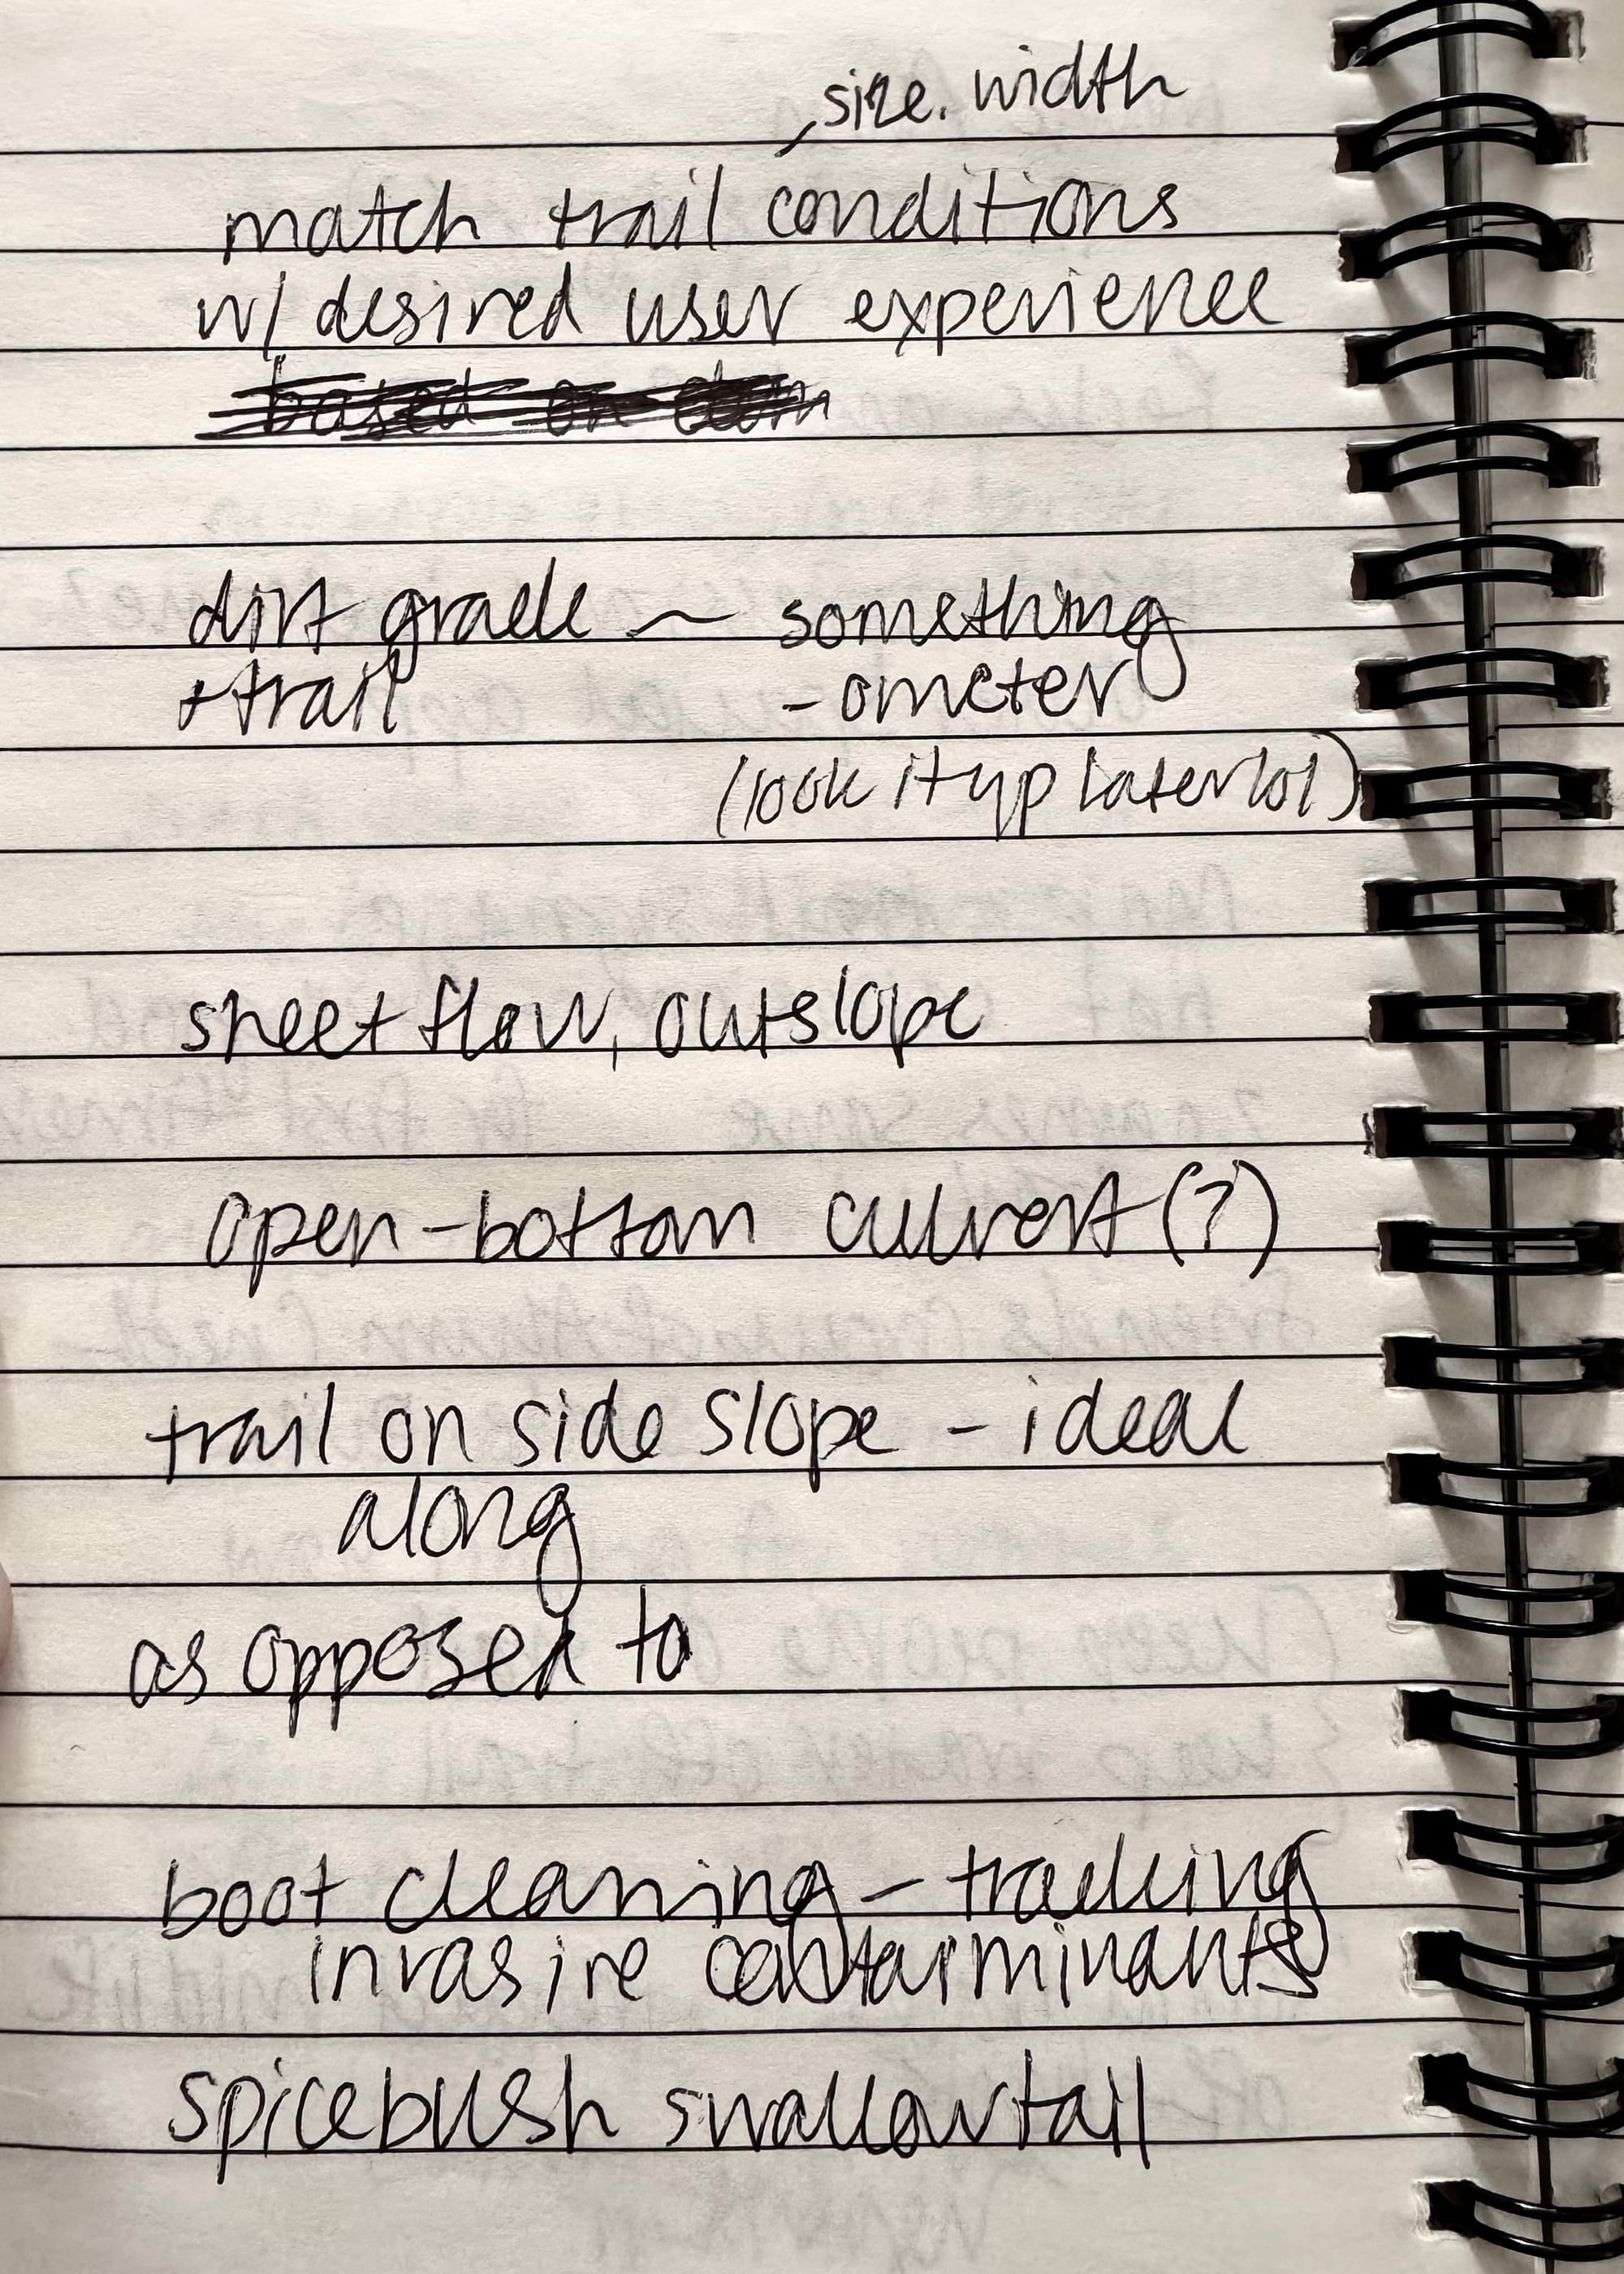 , size. width
match trail conditions
w/ desired user experience
based on
dirt grade ~ something
+ trail -ometer
(look it up later lol)
sheet flow, outslope
open-bottom culvert (?)
trail on side slope - ideal
along
as opposed to
boot cleaning - tracking
invasive contaminants
spicebush swallowtail